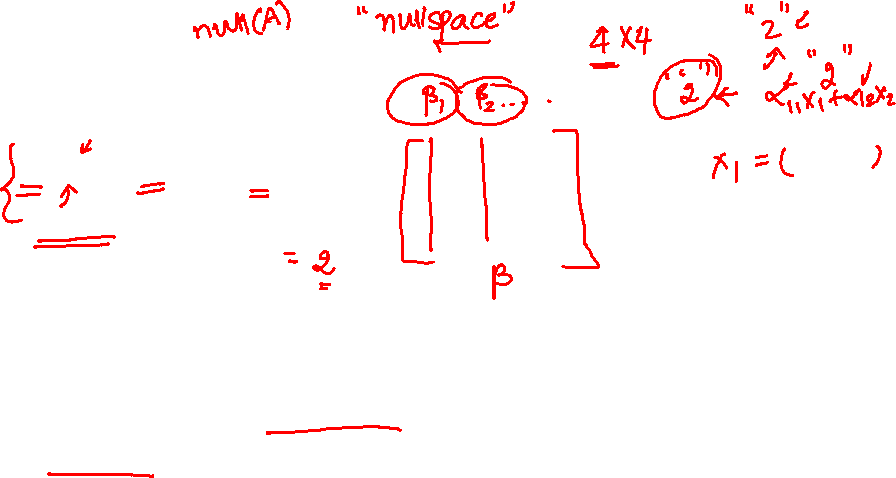 null(A) "nullspace"
4 x 4
"2"
β₁ β₂ ...
"2"
"2"
α₁₁x₁ + α₁₂x₂
x₁ = ( )
{ = = =
= 2
β